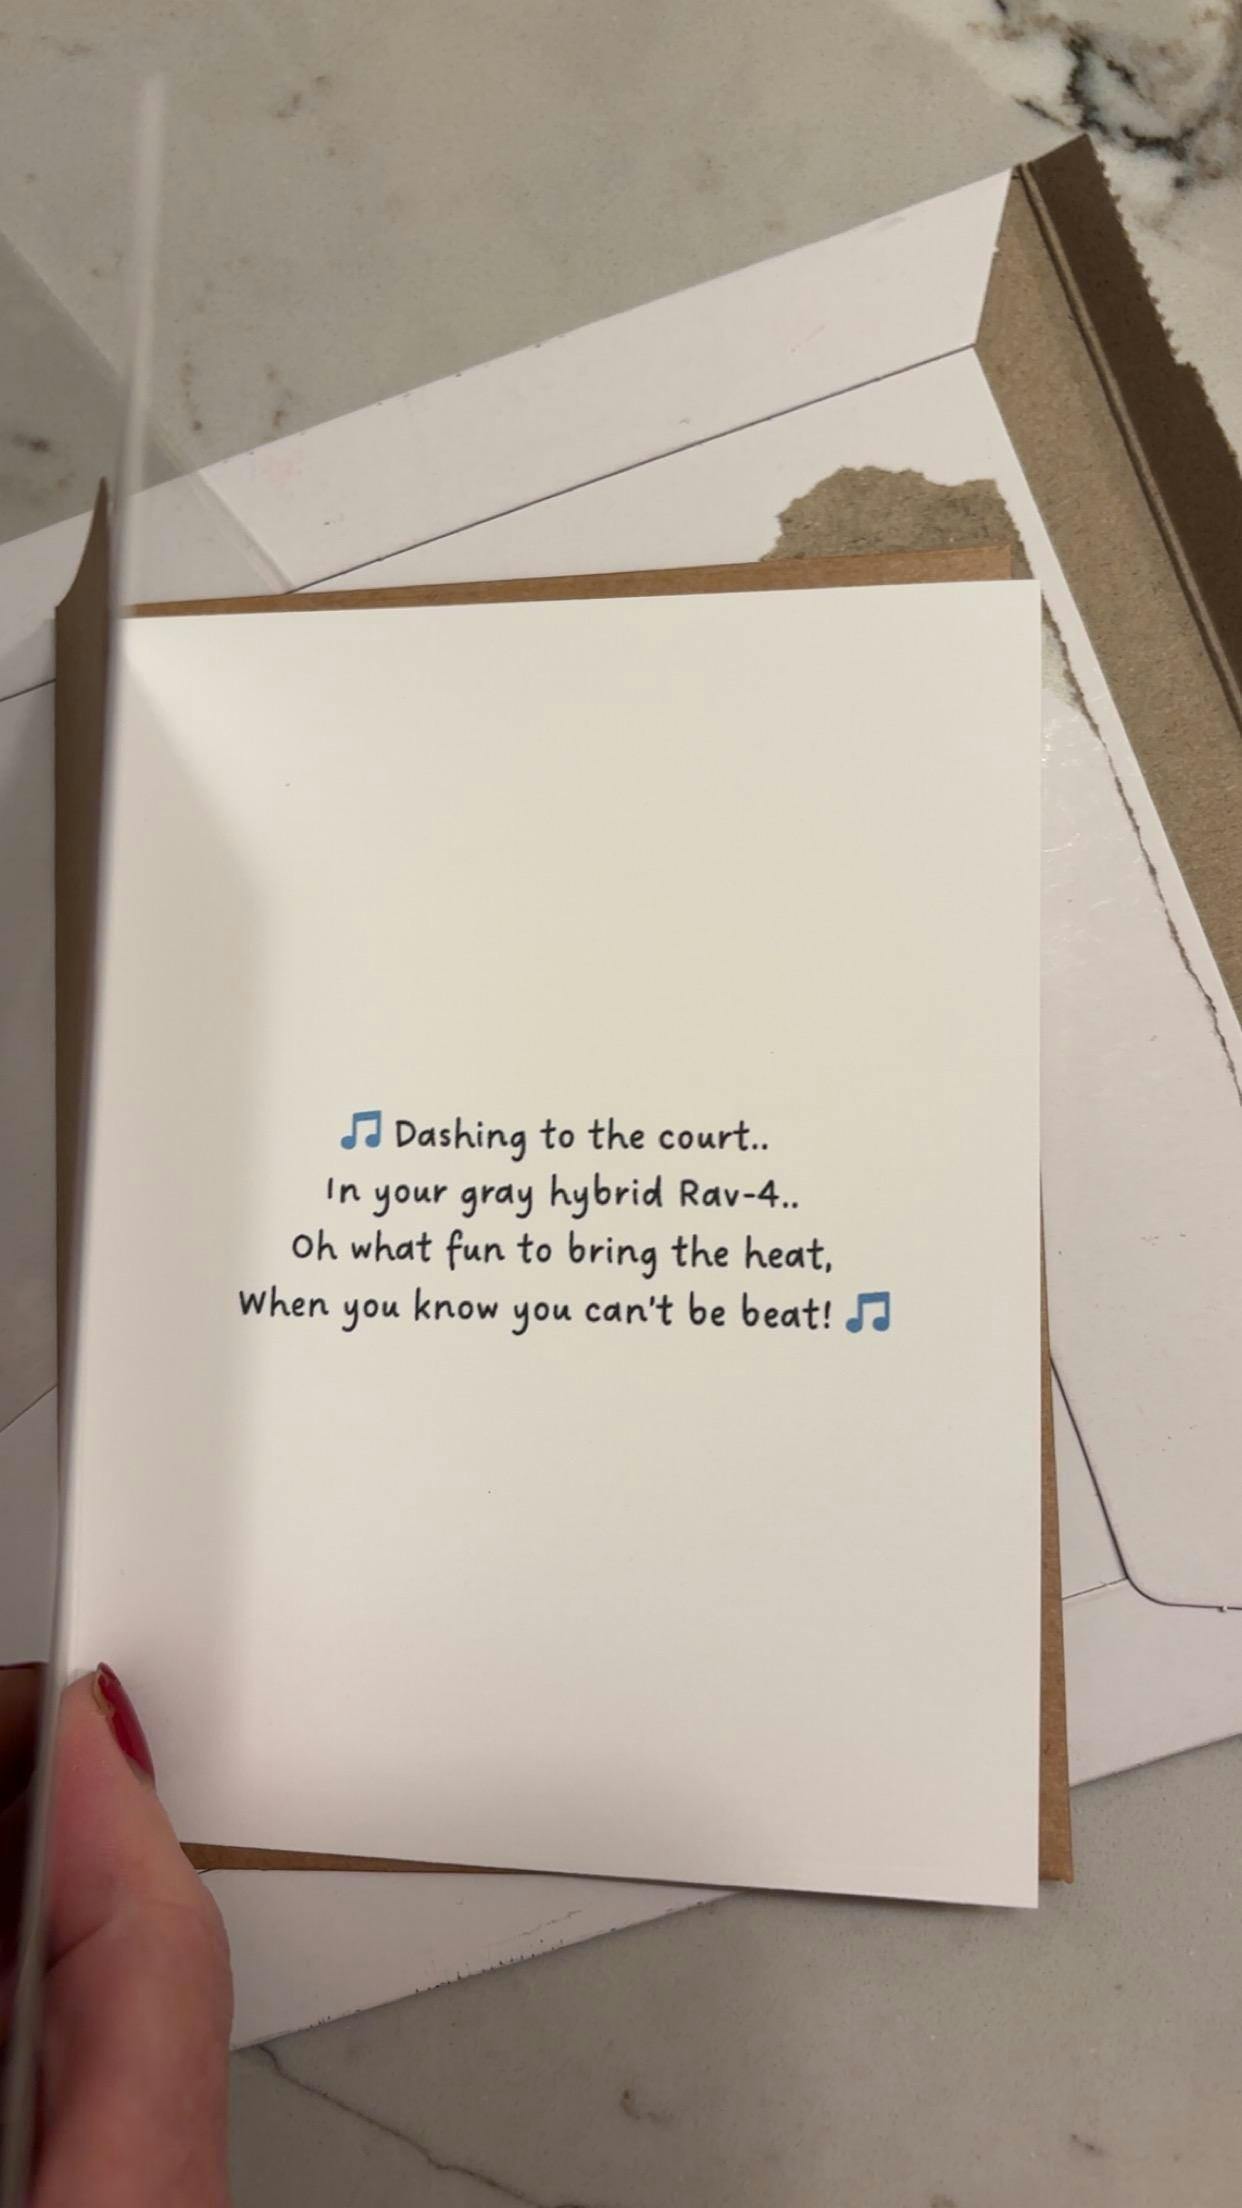 🎵 Dashing to the court..
In your gray hybrid Rav-4..
Oh what fun to bring the heat,
When you know you can't be beat! 🎵